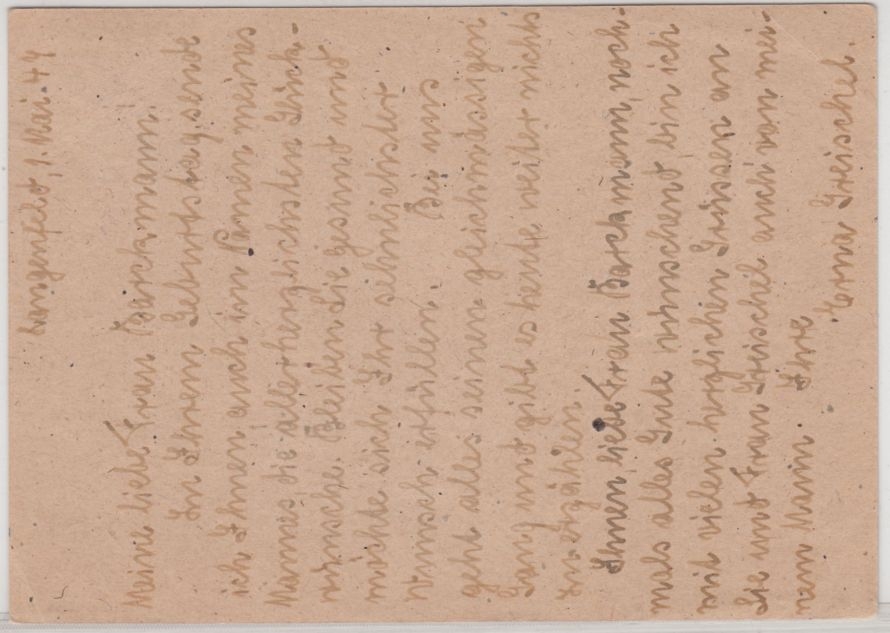 Langenfeld, 1. Mai. 44
Meine liebe Frau Barckmann.
Zu Ihrem Geburtstag sende
ich Ihnen auch im Namen meines
Mannes, die allerherzlichsten Glück-
wünsche. Bleiben Sie gesund und
möchte sich Ihr sehnlichster
Wunsch erfüllen. Bei uns
geht alles seinen gleichmässigen
Gang und gibt es heute weiter nichts
zu erzählen.
Ihnen, liebe Frau Barckmann, noch-
mals alles Gute wünschend, bin ich
mit vielen herzlichen Grüssen an
Sie und Frau Greischel auch von mei-
nem Mann Ihre
Erna Greischel.